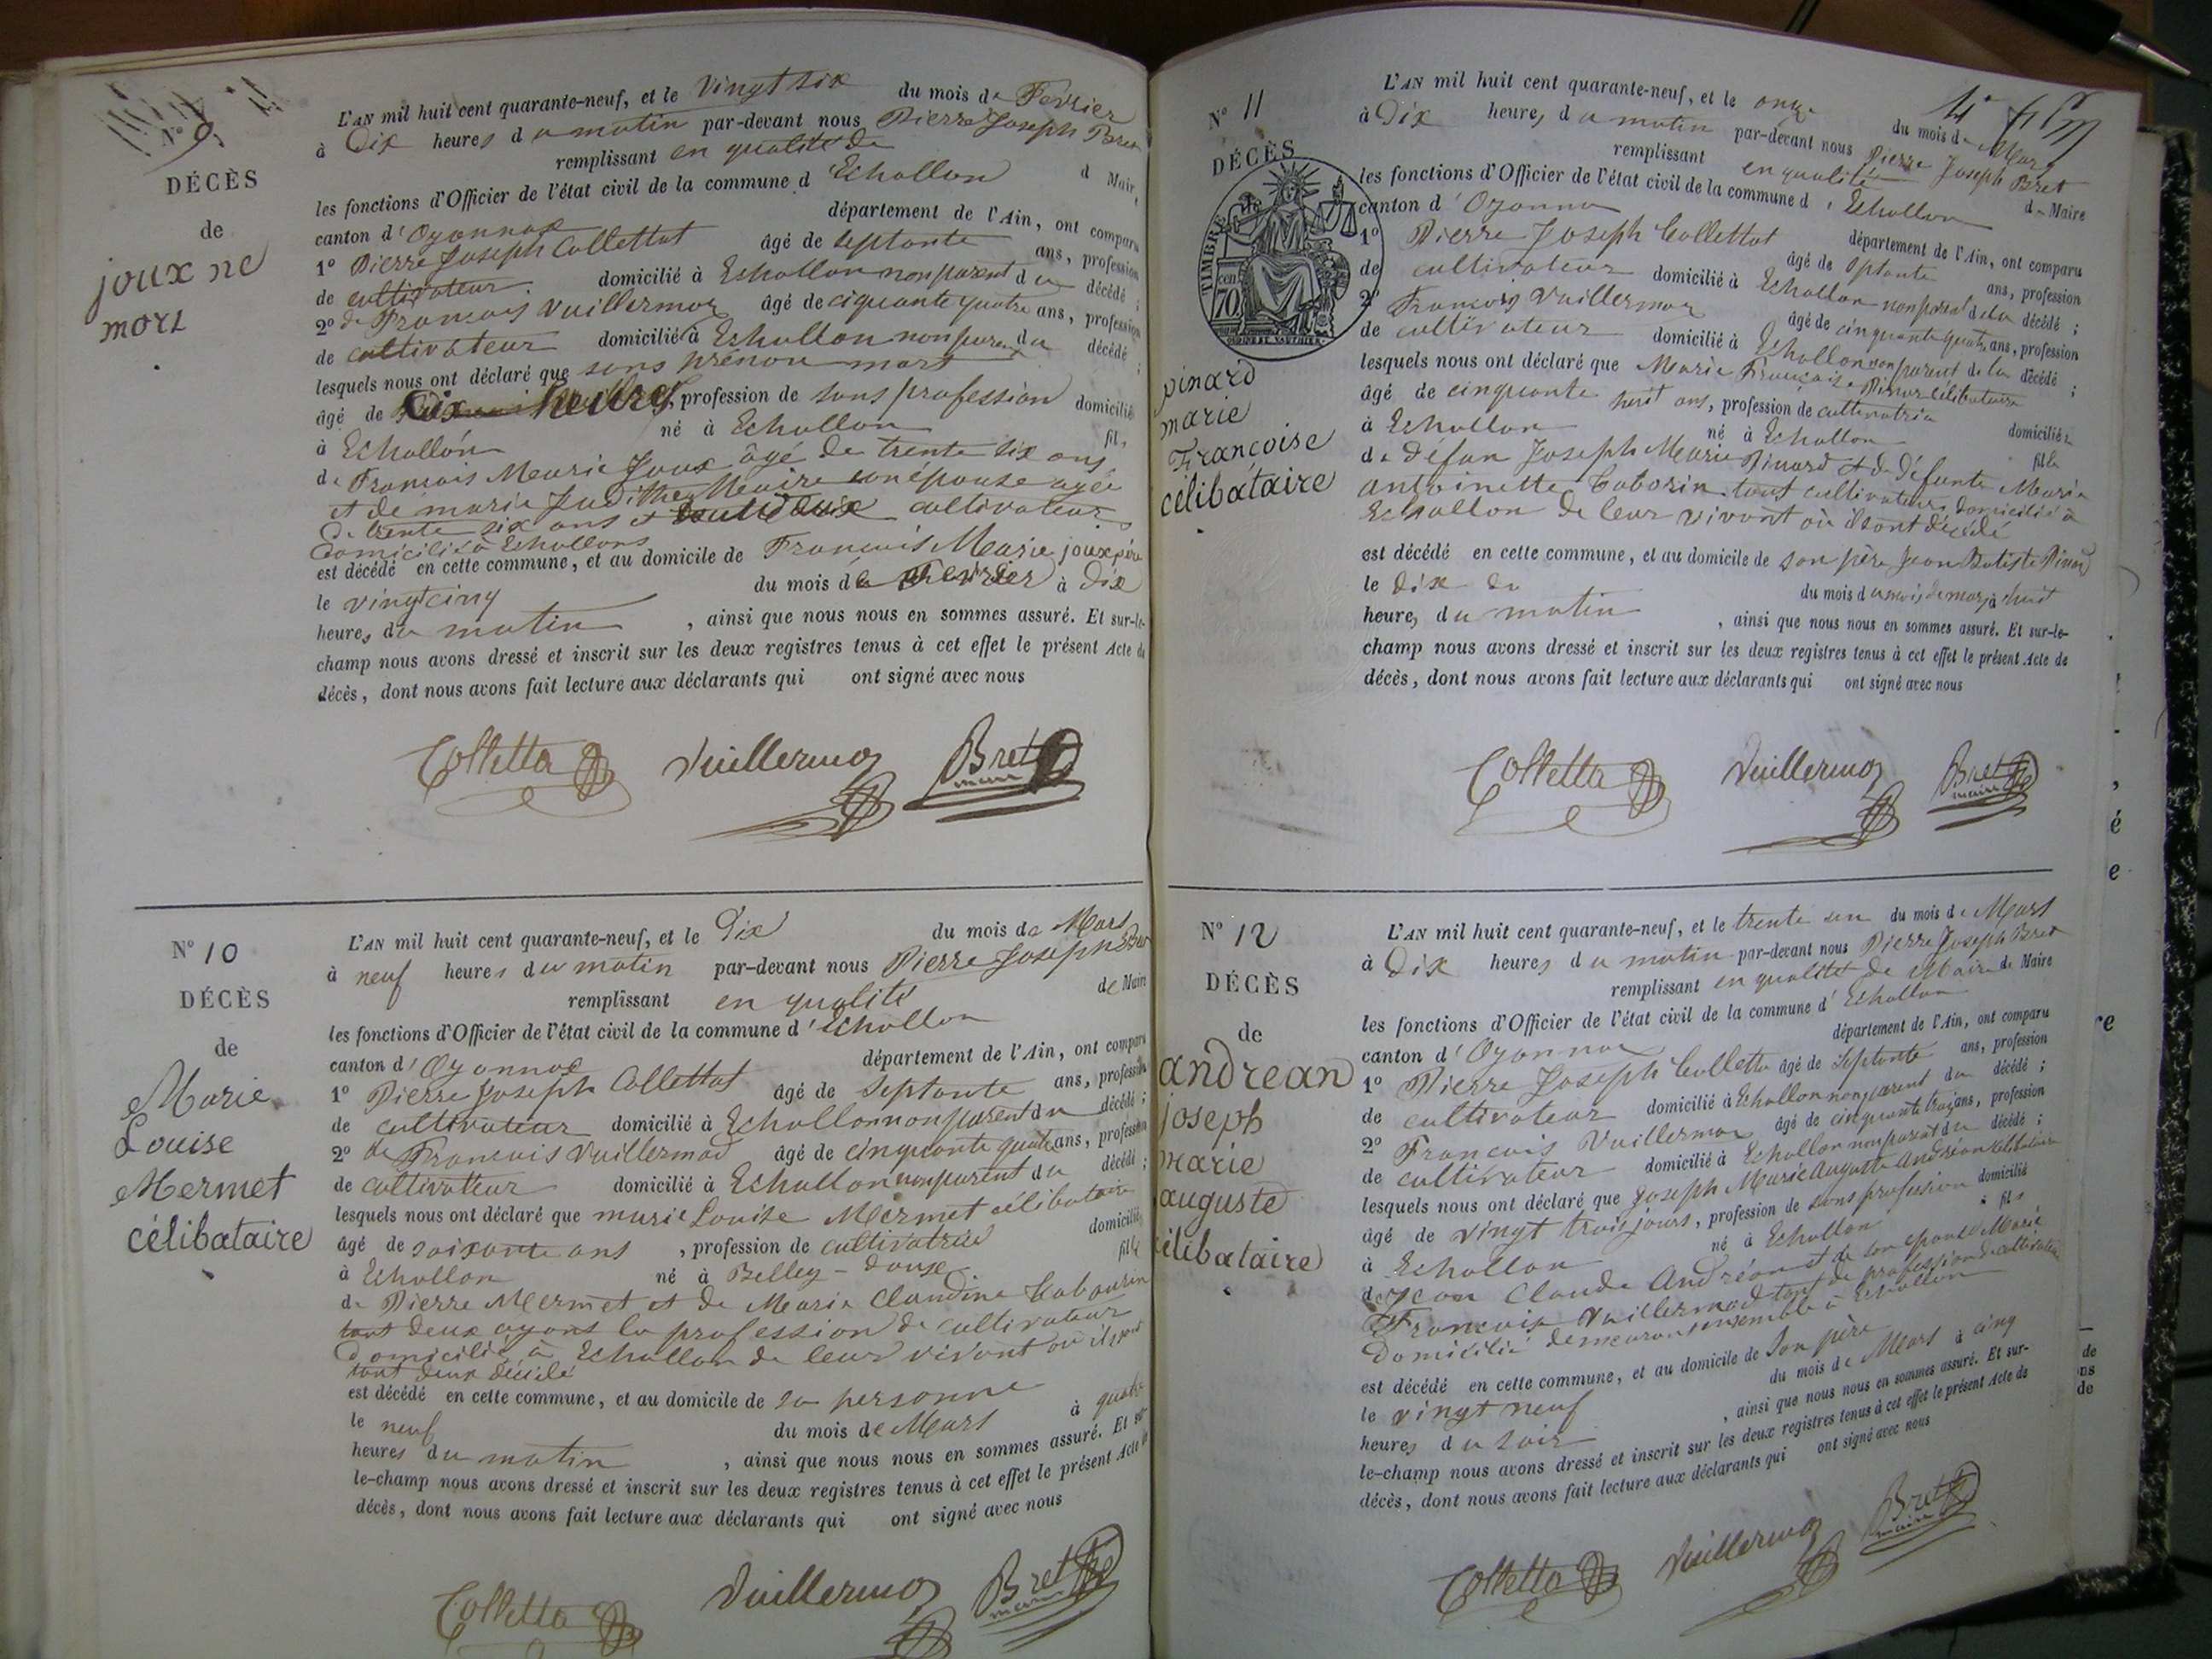 N° 9
DÉCÈS
de
joux ne
mort
L'AN mil huit cent quarante-neuf, et le vingt six du mois de Fevrier
à Dix heures du matin par-devant nous Pierre Joseph Bret
remplissant en qualité de Maire
les fonctions d'Officier de l'état civil de la commune d Echallon
canton d'Oyonnax département de l'Ain, ont comparu
1° Pierre Joseph Collettat âgé de septante ans, profession
de cultivateur domicilié à Echallon non parent du décédé ;
2° de François Vuillermoz âgé de ciquante quatre ans, profession
de cultivateur domicilié à Echallon non parent du décédé ;
lesquels nous ont déclaré que sans prénom mort
âgé de Dix heures, profession de sans profession domicilié
à Echallon né à Echallon fils
de François Marie Joux âgé de trente six ans
et de marie Judithe Maire son épouse agée
de trente six ans et cultivateurs
domicilié à Echallons
est décédé en cette commune, et au domicile de François Marie joux père
le vingt cinq du mois de Fevrier à Dix
heures du matin , ainsi que nous nous en sommes assuré. Et sur-le-
champ nous avons dressé et inscrit sur les deux registres tenus à cet effet le présent Acte de
décès, dont nous avons fait lecture aux déclarants qui ont signé avec nous
Colletta Vuillermoz Bret
maire
N° 10
DÉCÈS
de
Marie
Louise
Mermet
célibataire
L'AN mil huit cent quarante-neuf, et le Dix du mois de Mars
à neuf heures du matin par-devant nous Pierre Joseph Bret
remplissant en qualité de Maire
les fonctions d'Officier de l'état civil de la commune d'Echallon
canton d'Oyonnax département de l'Ain, ont comparu
1° Pierre Joseph Collettat âgé de septante ans, profession
de cultivateur domicilié à Echallon non parent du décédé ;
2° de François Vuillermod âgé de cinquante quatre ans, profession
de cultivateur domicilié à Echallon non parent du décédé ;
lesquels nous ont déclaré que marie Louise Mermet célibataire
âgé de soixante ans , profession de cultivatrice domicilié
à Echallon né à Belley - doux fille
de Pierre Mermet et de Marie Claudine Tabourin
tout deux ayans la profession de cultivateur
domicilié à Echallon de leur vivant où il sont
tout deux décédé
est décédé en cette commune, et au domicile de sa personne
le neuf du mois de Mars à quatre
heures du matin , ainsi que nous nous en sommes assuré. Et sur-
le-champ nous avons dressé et inscrit sur les deux registres tenus à cet effet le présent Acte de
décès, dont nous avons fait lecture aux déclarants qui ont signé avec nous
Colletta Vuillermoz Bret
maire
N° 11
DÉCÈS
TIMBRE
70
de
pinard
marie
Françoise
célibataire
L'AN mil huit cent quarante-neuf, et le onze du mois de Mars
à Dix heures du matin par-devant nous Pierre Joseph Bret
remplissant en qualité de Maire
les fonctions d'Officier de l'état civil de la commune d'Echallon
canton d'Oyonna département de l'Ain, ont comparu
1° Pierre Joseph Collettat âgé de Sptante ans, profession
de cultivateur domicilié à Echallon non parent de la décédé ;
2° François Vuillermoz âgé de cinquante quatre ans, profession
de cultivateur domicilié à Echallon non parent de la décédé ;
lesquels nous ont déclaré que Marie Françoise Pinar célibataire
âgé de cinquante huit ans, profession de cultivatrice domiciliée
à Echallon né à Echallon fille
de défun Joseph Marie Pinard et de Défunte Marie
antoinette Taborin tout cultivateurs domicilié à
Echallon de leur vivant où il sont décédé
est décédé en cette commune, et au domicile de son père Jean Batiste Pinard
le dix du du mois du mois de mars à huit
heures du matin , ainsi que nous nous en sommes assuré. Et sur-le-
champ nous avons dressé et inscrit sur les deux registres tenus à cet effet le présent Acte de
décès, dont nous avons fait lecture aux déclarants qui ont signé avec nous
Colletta Vuillermoz Bret
maire
N° 12
DÉCÈS
de
andrean
joseph
marie
auguste
célibataire
L'AN mil huit cent quarante-neuf, et le trente un du mois de Mars
à Dix heures du matin par-devant nous Pierre Joseph Bret
remplissant en qualité de Maire de Maire
les fonctions d'Officier de l'état civil de la commune d'Echallon
canton d'Oyonnax département de l'Ain, ont comparu
1° Pierre Joseph Colletta âgé de Septante ans, profession
de cultivateur domicilié à Echallon non parent du décédé ;
2° François Vuillermoz âgé de cinquante trois ans, profession
de cultivateur domicilié à Echallon non parent du décédé ;
lesquels nous ont déclaré que joseph Marie Auguste Andréan célibataire
âgé de vingt trois jours, profession de sans profession domicilié
à Echallon né à Echallon fils
de Jean Claude Andréan et de son epouse Marie
Françoise Vuillermod tout de profession de cultivateur
Domicilié demeurant ensemble à Echallon
est décédé en cette commune, et au domicile de Son père
le vingt neuf du mois de Mars à cinq
heures du soir , ainsi que nous nous en sommes assuré. Et sur-
le-champ nous avons dressé et inscrit sur les deux registres tenus à cet effet le présent Acte de
décès, dont nous avons fait lecture aux déclarants qui ont signé avec nous
Colletta Vuillermoz Bret
maire